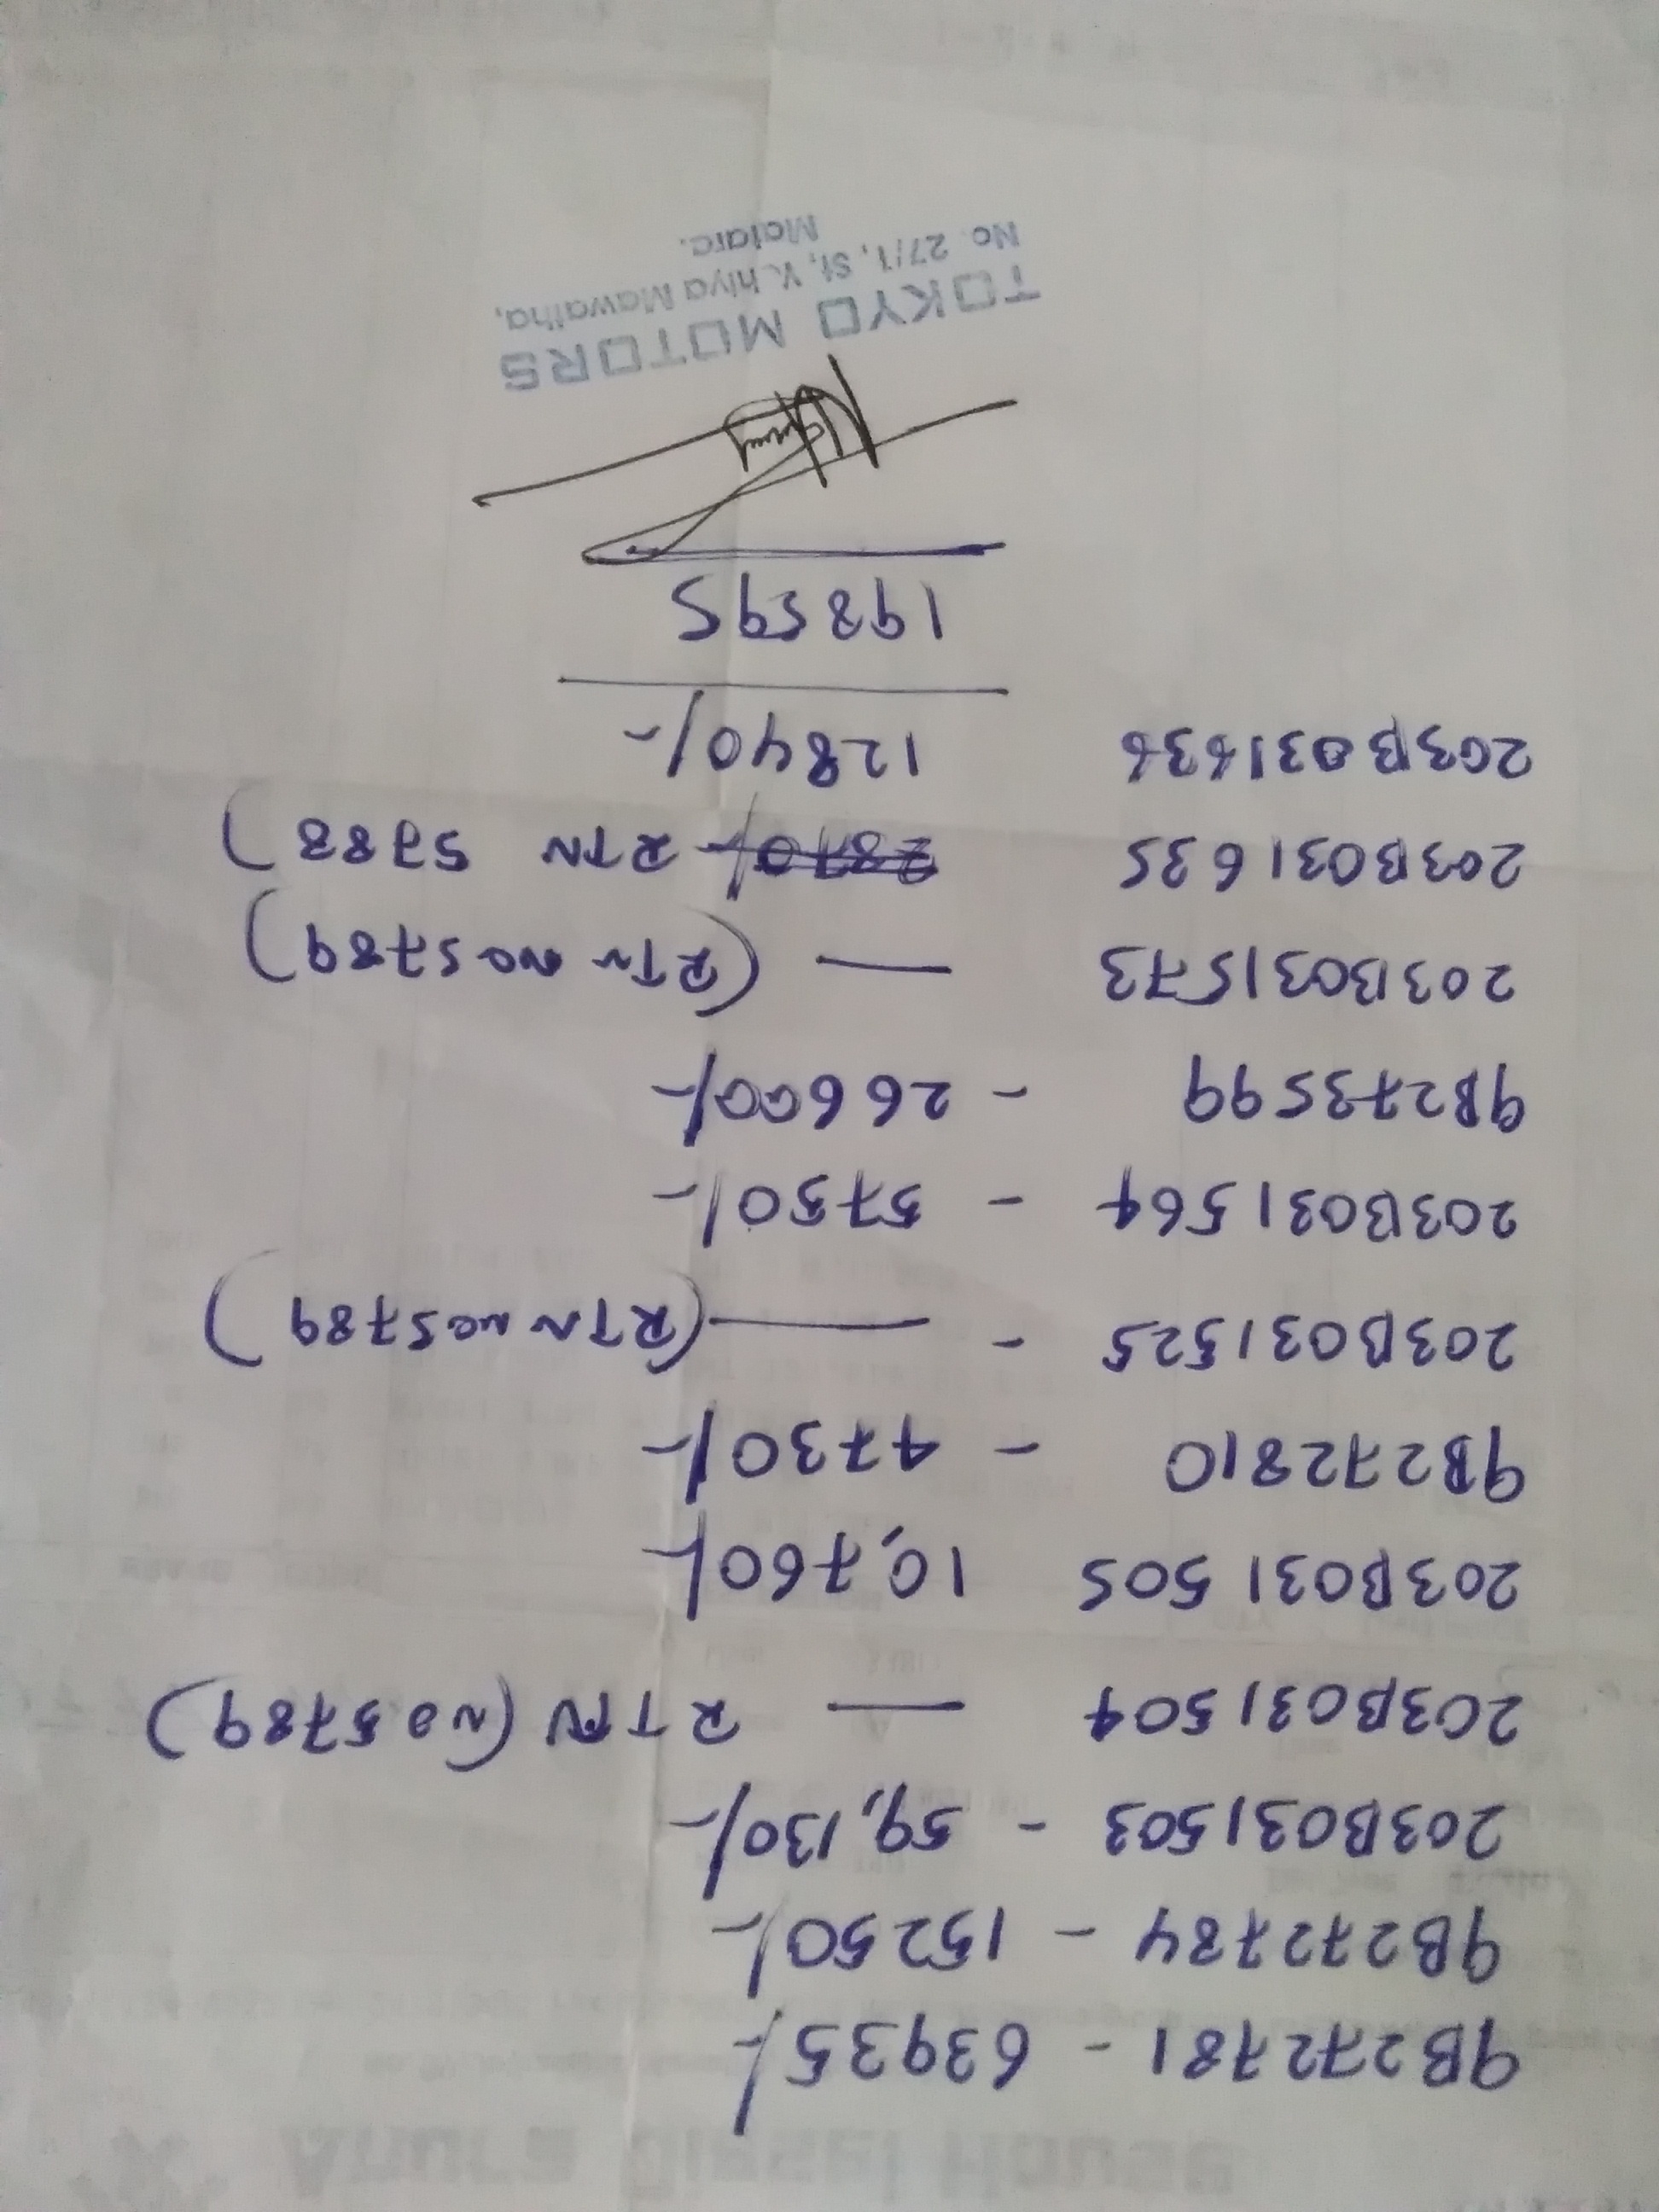 Anura Diesel House
9B272781 - 63935/-
9B272784 - 15250/-
203B031503 - 59,130/-
203B031504 — RTN (No 5789)
203B031505 10,760/-
9B272810 - 4730/-
203B031525 - — (RTN No 5789)
203B031564 - 5750/-
9B273599 - 26600/-
203B031573 — (RTN No 5789)
203B031635 2870/- RTN 5788)
203B031636 12840/-
198595
TOKYO MOTORS
No. 27/1, St, Mawatha,
Matara.